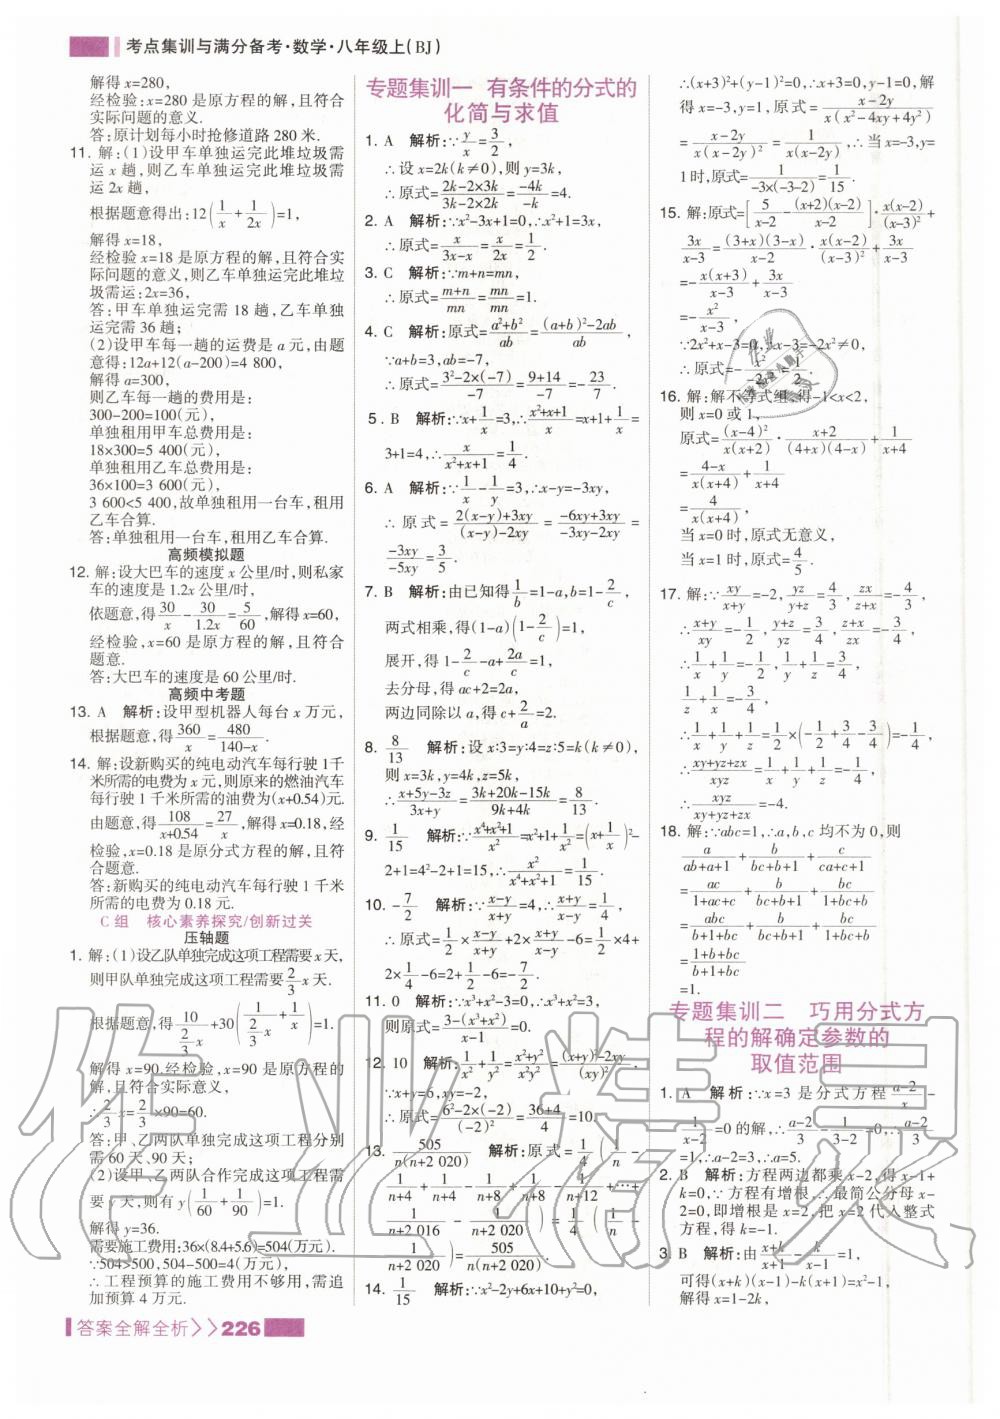 考点集训与满分备考·数学·八年级上(BJ)
解得x=280，
经检验：x=280 是原方程的解，且符合
实际问题的意义.
答：原计划每小时抢修道路 280 米.
11. 解：(1)设甲车单独运完此堆垃圾需
运 x 趟，则乙车单独运完此堆垃圾需
运 2x 趟，
根据题意得出：12(1/x+1/2x)=1，
解得 x=18，
经检验 x=18 是原方程的解，且符合
实际问题的意义，则乙车单独运完此堆垃
圾需运：2x=36，
答：甲车单独运完需 18 趟，乙车单独
运完需 36 趟；
(2)设甲车每一趟的运费是 a 元，由题
意得：12a+12(a-200)=4 800，
解得 a=300，
则乙车每一趟的费用是：
300-200=100(元)，
单独租用甲车总费用是：
18×300=5 400(元)，
单独租用乙车总费用是：
36×100=3 600(元)，
3 600<5 400，故单独租用一台车，租用
乙车合算.
答：单独租用一台车，租用乙车合算.
高频模拟题
12. 解：设大巴车的速度 x 公里/时，则私家
车的速度是 1.2x 公里/时，
依题意，得 30/x-30/1.2x=5/60，解得 x=60，
经检验，x=60 是原方程的解，且符合
题意.
答：大巴车的速度是 60 公里/时.
高频中考题
13. A 解析：设甲型机器人每台 x 万元，
根据题意，得 360/x=480/(140-x).
14. 解：设新购买的纯电动汽车每行驶 1千
米所需的电费为 x 元，则原来的燃油汽车
每行驶 1 千米所需的油费为(x+0.54)元.
由题意，得 108/(x+0.54)=27/x，解得 x=0.18，经
检验，x=0.18 是原分式方程的解，且符
合题意.
答：新购买的纯电动汽车每行驶 1 千米
所需的电费为 0.18 元.
C 组 核心素养探究/创新过关
压轴题
1. 解：(1)设乙队单独完成这项工程需要 x 天，
则甲队单独完成这项工程需要 2/3 x 天.
根据题意，得 10/(2/3 x)+30(1/(2/3 x)+1/x)=1.
解得 x=90.经检验，x=90 是原方程的
解，且符合实际意义，
∴2/3 x=2/3×90=60.
答：甲、乙两队单独完成这项工程分别
需 60 天、90 天；
(2)设甲、乙两队合作完成这项工程需
要 y 天，则有 y(1/60+1/90)=1.
解得 y=36.
需要施工费用：36×(8.4+5.6)=504(万元).
∵504>500，504-500=4(万元)，
∴工程预算的施工费用不够用，需追
加预算 4 万元.
专题集训一 有条件的分式的
化简与求值
1. A 解析：∵y/x=3/2，
∴设 x=2k(k≠0)，则 y=3k，
∴原式=(2k-2×3k)/(3k-2×2k)=-4k/-k=4.
2. A 解析：∵x²-3x+1=0，∴x²+1=3x，
∴原式=x/(3x-x)=x/2x=1/2.
3. C 解析：∵m+n=mn，
∴原式=(m+n)/mn=mn/mn=1.
4. C 解析：原式=(a²+b²)/ab=((a+b)²-2ab)/ab，
∵a+b=3，ab=-7，
∴原式=(3²-2×(-7))/-7=(9+14)/-7=-23/7.
5. B 解析：∵x+1/x=3，∴(x²+x+1)/x=x+1+1/x=
3+1=4，∴x/(x²+x+1)=1/4.
6. A 解析：∵1/x-1/y=3，∴x-y=-3xy，
∴原式=(2(x-y)+3xy)/((x-y)-2xy)=(-6xy+3xy)/(-3xy-2xy)=
-3xy/-5xy=3/5.
7. B 解析：由已知得 1/b=1-a，b=1-2/c，
两式相乘，得(1-a)(1-2/c)=1，
展开，得 1-2/c-a+2a/c=1，
去分母，得 ac+2=2a，
两边同除以 a，得 c+2/a=2.
8. 8/13 解析：设 x∶3=y∶4=z∶5=k(k≠0)，
则 x=3k，y=4k，z=5k，
∴(x+5y-3z)/(3x+y)=(3k+20k-15k)/(9k+4k)=8/13.
9. 1/15 解析：∵(x⁴+x²+1)/x²=x²+1+1/x²=(x+1/x)²-
2+1=4²-2+1=15，∴x²/(x⁴+x²+1)=1/15.
10. -7/2 解析：∵(x-y)/(x+y)=4，∴(x+y)/(x-y)=1/4，
∴原式=1/2×(x-y)/(x+y)+2×(x+y)/(x-y)-6=1/2×4+
2×1/4-6=2+1/2-6=-7/2.
11. 0 解析：∵x³+x²-3=0，∴x³+x²=3，
则原式=(3-(x³+x²))/(x-1)=0.
12. 10 解析：1/x²+1/y²=(x²+y²)/x²y²=((x+y)²-2xy)/(xy)².
∵x+y=6，xy=-2，
∴原式=(6²-2×(-2))/(-2)²=(36+4)/4=10.
13. 505/n(n+2 020) 解析：原式=1/4(1/n-
1/(n+4)+1/(n+4)-1/(n+8)+1/(n+8)-1/(n+12)+…+
1/(n+2 016)-1/(n+2 020))=1/4(1/n-
1/(n+2 020))=505/n(n+2 020).
14. 1/15 解析：∵x²-2y+6x+10+y²=0，
∴(x+3)²+(y-1)²=0，∴x+3=0，y-1=0，解
得 x=-3，y=1，原式=(x-2y)/x(x²-4xy+4y²)
=(x-2y)/x(x-2y)²=1/x(x-2y)，∴当 x=-3，y=
1 时，原式=1/(-3×(-3-2))=1/15.
15. 解：原式=[5/(x-2)-(x+2)(x-2)/(x-2)]·x(x-2)/(x-3)²+
3x/(x-3)=(3+x)(3-x)/(x-2)·x(x-2)/(x-3)²+3x/(x-3)
=-x(x+3)/(x-3)+3x/(x-3)
=-x²/(x-3)，
∵2x²+x-3=0，∴x-3=-2x²≠0，
∴原式=-x²/-2x²=1/2.
16. 解：解不等式组，得-1<x<2，
则 x=0 或 1，
原式=(x-4)²/x(x+2)·(x+2)/(4+x)(4-x)+1/(x+4)
=(4-x)/x(x+4)+1/(x+4)
=4/x(x+4)，
当 x=0 时，原式无意义，
当 x=1 时，原式=4/5.
17. 解：∵xy/(x+y)=-2，yz/(y+z)=4/3，zx/(z+x)=-4/3，
∴(x+y)/xy=-1/2，(y+z)/yz=3/4，(z+x)/zx=-3/4，
∴1/x+1/y=-1/2，1/y+1/z=3/4，
1/z+1/x=-3/4，
∴1/x+1/y+1/z=1/2×(-1/2+3/4-3/4)=-1/4，
∴(xy+yz+zx)/xyz=1/x+1/y+1/z=-1/4，
∴xyz/(xy+yz+zx)=-4.
18. 解：∵abc=1，∴a，b，c 均不为 0，则
a/(ab+a+1)+b/(bc+b+1)+c/(ca+c+1)
=ac/(1+ac+c)+b/(bc+b+1)+c/(ca+c+1)
=abc/(b+1+bc)+b/(bc+b+1)+1/(b+1+bc)
=(1+b+bc)/(b+1+bc)
=1.
专题集训二 巧用分式方
程的解确定参数的
取值范围
1. A 解析：∵x=3 是分式方程 (a-2)/x-
1/(x-2)=0 的解，∴(a-2)/3-1/(3-2)=0，∴(a-2)/3
=1，∴a-2=3，∴a=5.
2. B 解析：方程两边都乘 x-2，得 x-1+
k=0，∵方程有增根，∴最简公分母 x-
2=0，即增根是 x=2，把 x=2 代入整式
方程，得 k=-1.
3 B 解析：由(x+k)/(x+1)-k/(x-1)=1，
可得(x+k)(x-1)-k(x+1)=x²-1，
解得 x=1-2k，
答案全解全析>>226
作业精灵